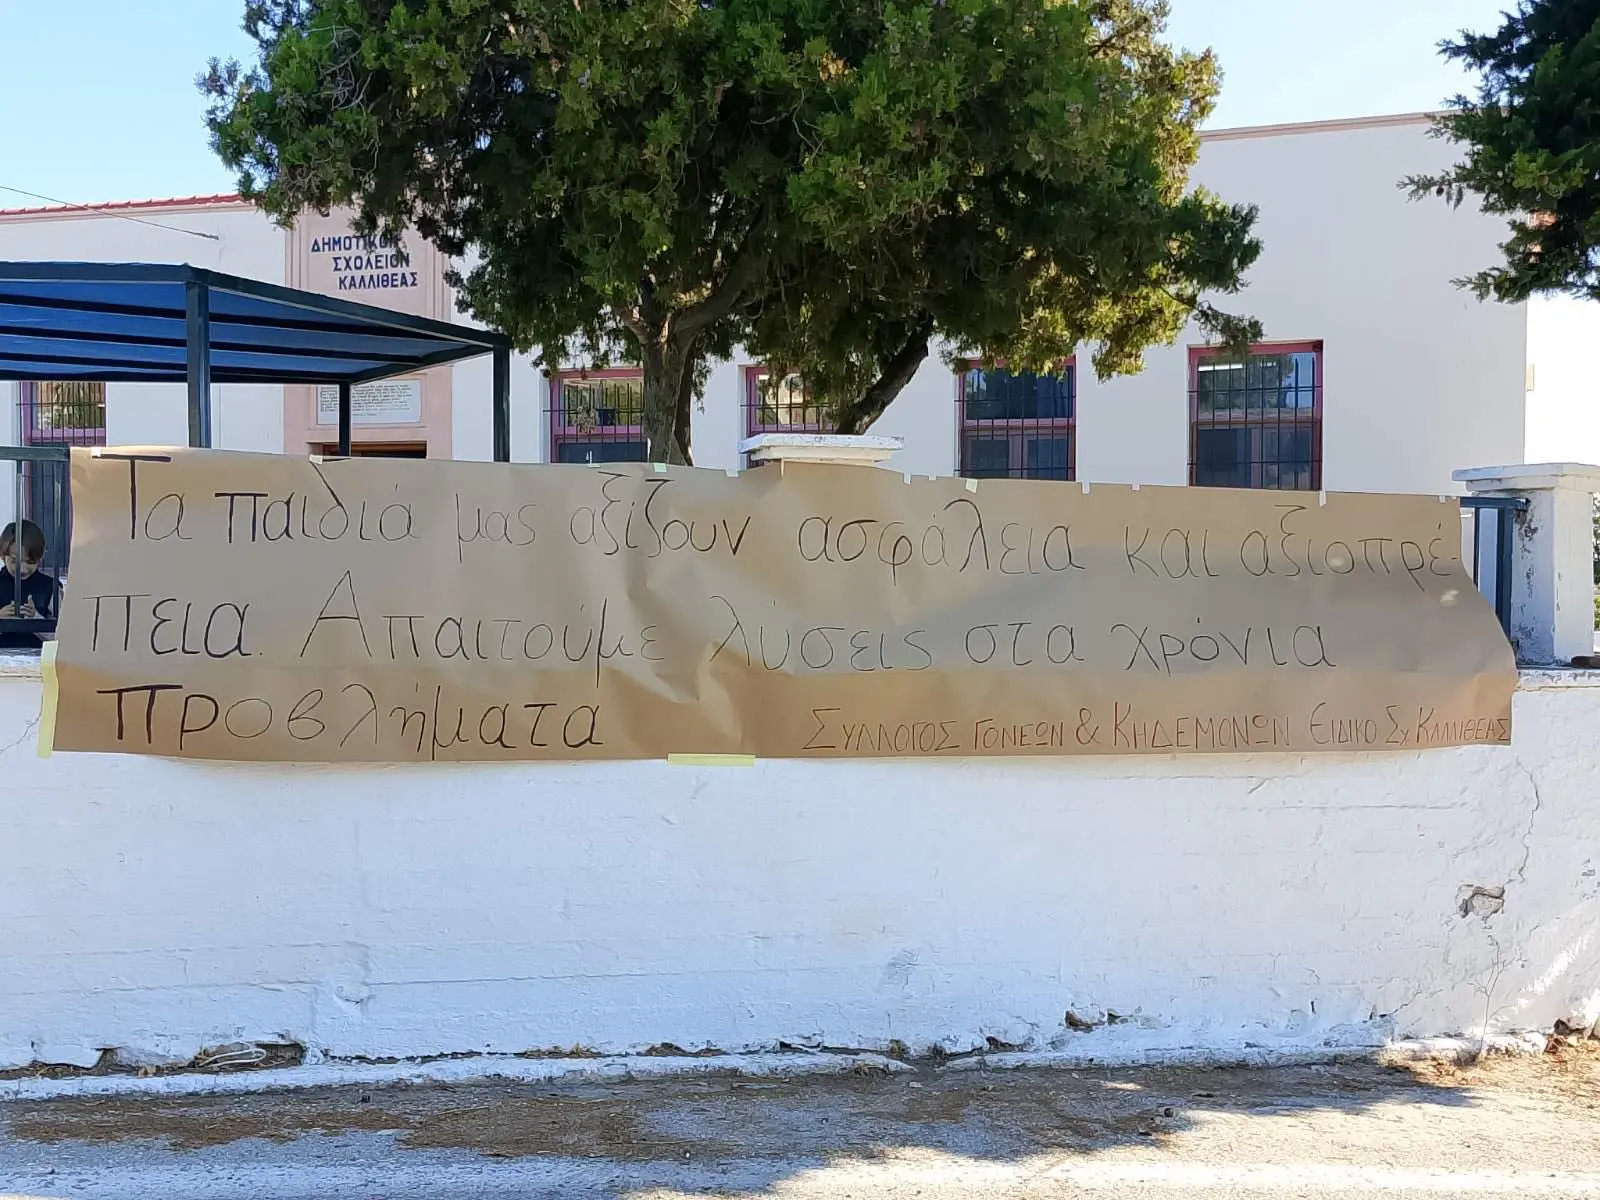 ΔΗΜΟΤΙΚΟΝ
ΣΧΟΛΕΙΟΝ
ΚΑΛΛΙΘΕΑΣ
Τα παιδιά μας αξίζουν ασφάλεια και αξιοπρέ-
πεια. Απαιτούμε λύσεις στα χρόνια
προβλήματα
ΣΥΛΛΟΓΟΣ ΓΟΝΕΩΝ & ΚΗΔΕΜΟΝΩΝ ΕΙΔΙΚΟ ΣΧ ΚΑΛΛΙΘΕΑΣ